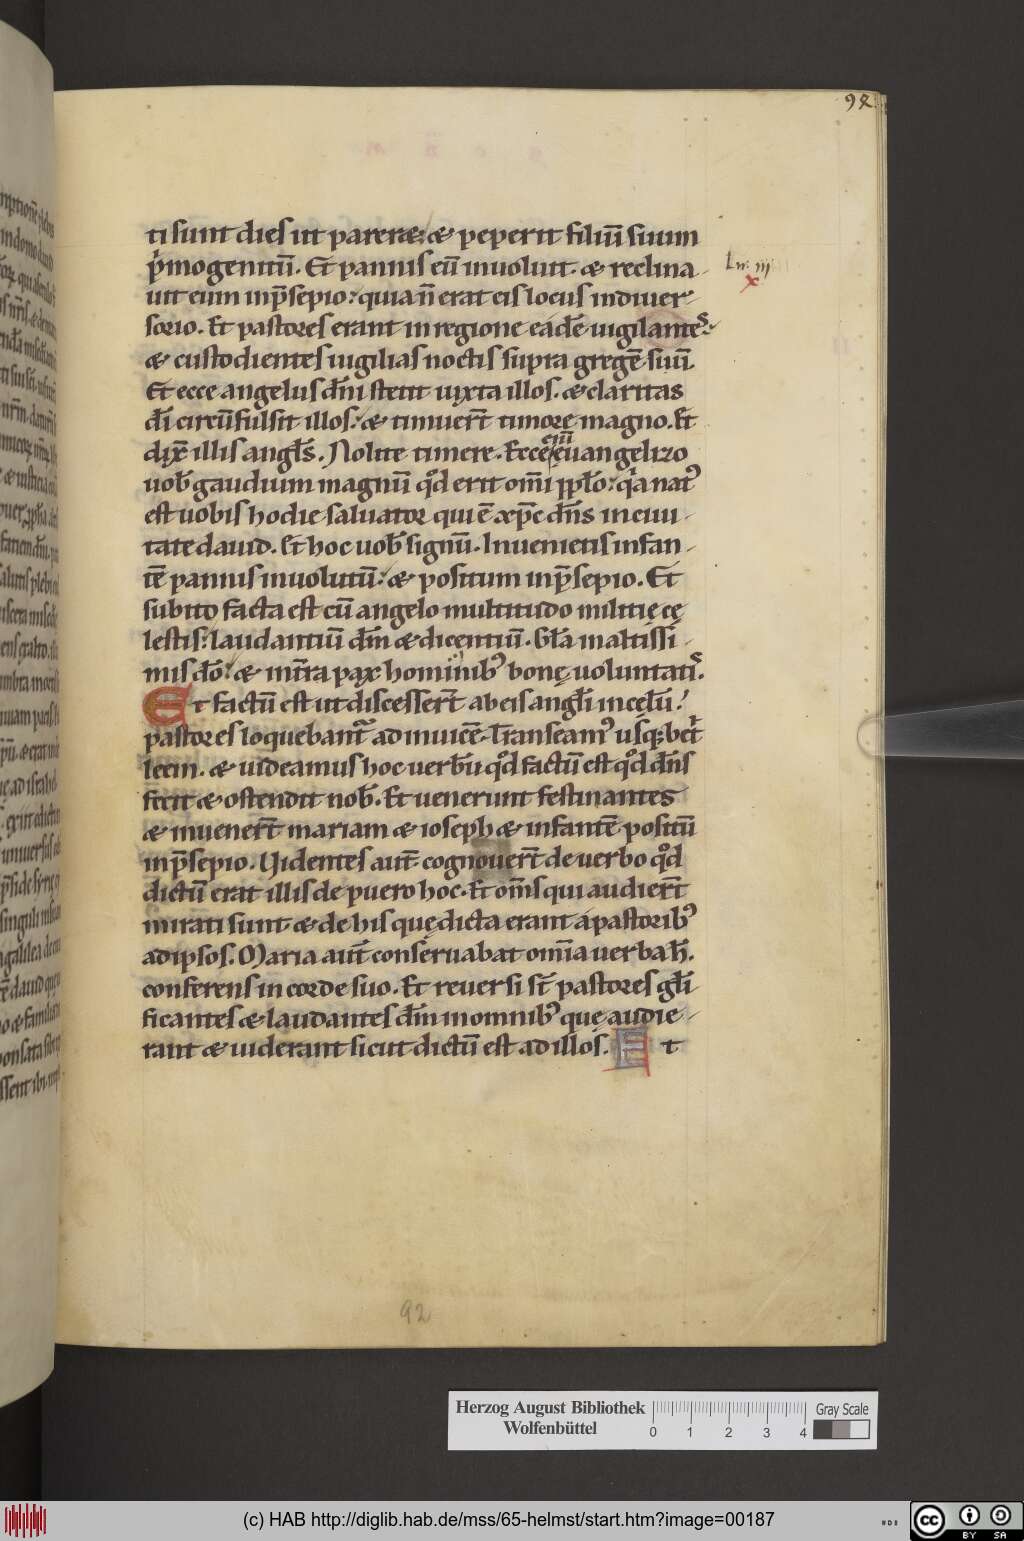 92
ti sunt dies ut pareret. & peperit filiū suum
p̄mogenitū. Et pannis eū inuoluit. & reclina-
uit eum inp̄sepio. quia n̄ erat eis locus indiuer-
sorio. Et pastores erant in regione eadē uigilantes.
& custodientes uigilias noctis supra gregē suū.
Et ecce angelus dn̄i stetit iuxta illos. & claritas
dī circūfulsit illos. & timuer̄t timore magno. Et
dix̄ illis angl̄s. Nolite timere. Ecce eni̅ euangelizo
uob̄ gaudium magnū qd̄ erit om̄i ppl̄o. qa nat᾽
est uobis hodie saluator qui ē xp̄c dn̄s in ciui-
tate dauid. Et hoc uob̄ signū. Inuenietis infan-
tē pannis inuolutū. & positum inp̄sepio. Et
subito facta est cū angelo multitudo militię cę-
lestis. laudantiū dm̄ & dicentiū. Gl̄a inaltissi-
mis dō. & int̄ra pax hominib᾽ bonę uoluntatis.
Et factū est ut discesser̄t ab eis angl̄i in cęlū.
pastores loquebant᷑ adinuicē. Transeam᾽ usq; bet-
leem. & uideamus hoc uerbū qd̄ factū est qd̄ dn̄s
fecit & ostendit nob̄. Et uenerunt festinantes
& inuener̄t mariam & ioseph & infantē positū
inp̄sepio. Uidentes aut̄ cognouer̄t de uerbo qd̄
dictū erat illis de puero hoc. Et om̄s qui audier̄t
mirati sunt & de his quę dicta erant a pastorib᾽
adipsos. Maria aut̄ conseruabat om̄ia uerba h̄.
conferens in corde suo. Et reuersi st̄ pastores gl̄i
ficantes & laudantes dm̄ in omnib᾽ quę audie-
rant & uiderant sicut dictū est ad illos. Et
92
Herzog August Bibliothek
Wolfenbüttel
0 1 2 3 4
Gray Scale
(c) HAB http://diglib.hab.de/mss/65-helmst/start.htm?image=00187
cc BY SA